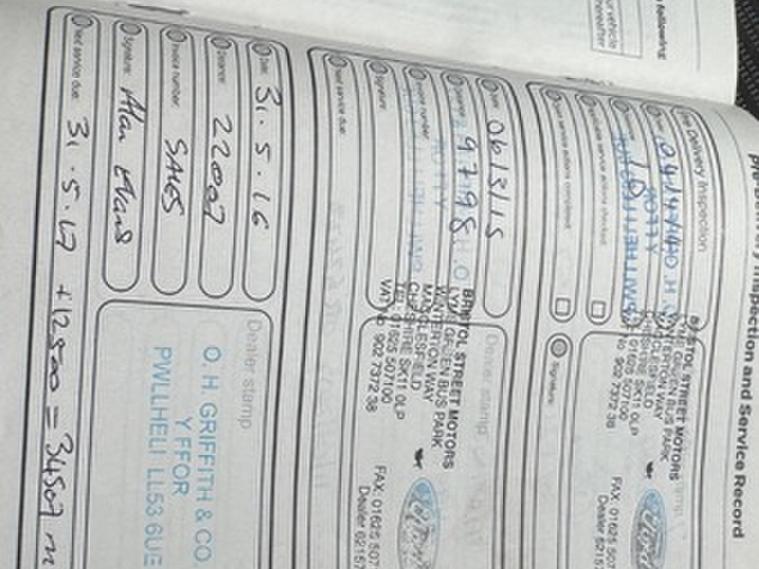 Pre-Delivery Inspection and Service Record
Pre Delivery Inspection
Date:
Signature:
BRISTOL STREET MOTORS
LYME GREEN BUS PARK
WINTERTON WAY
MACCLESFIELD
CHESHIRE SK11 0LP
TEL: 01625 507100
VAT No 902 7372 38
FAX: 01625 507
Dealer 62157
Ford
Date: 06/3/15
Distance: 9798
Invoice number:
Signature:
Next service due:
Dealer stamp
BRISTOL STREET MOTORS
LYME GREEN BUS PARK
WINTERTON WAY
MACCLESFIELD
CHESHIRE SK11 0LP
TEL: 01625 507100
VAT No 902 7372 38
FAX: 01625 507
Dealer 62157
Ford
Date: 31.5.16
Distance: 22007
Invoice number: SALES
Signature: Alan Evans
Next service due: 31.5.17 +12500 = 34507 m
Dealer stamp
O. H. GRIFFITH & CO.
Y FFOR
PWLLHELI LL53 6UE
following
ur vehicle
hereafter